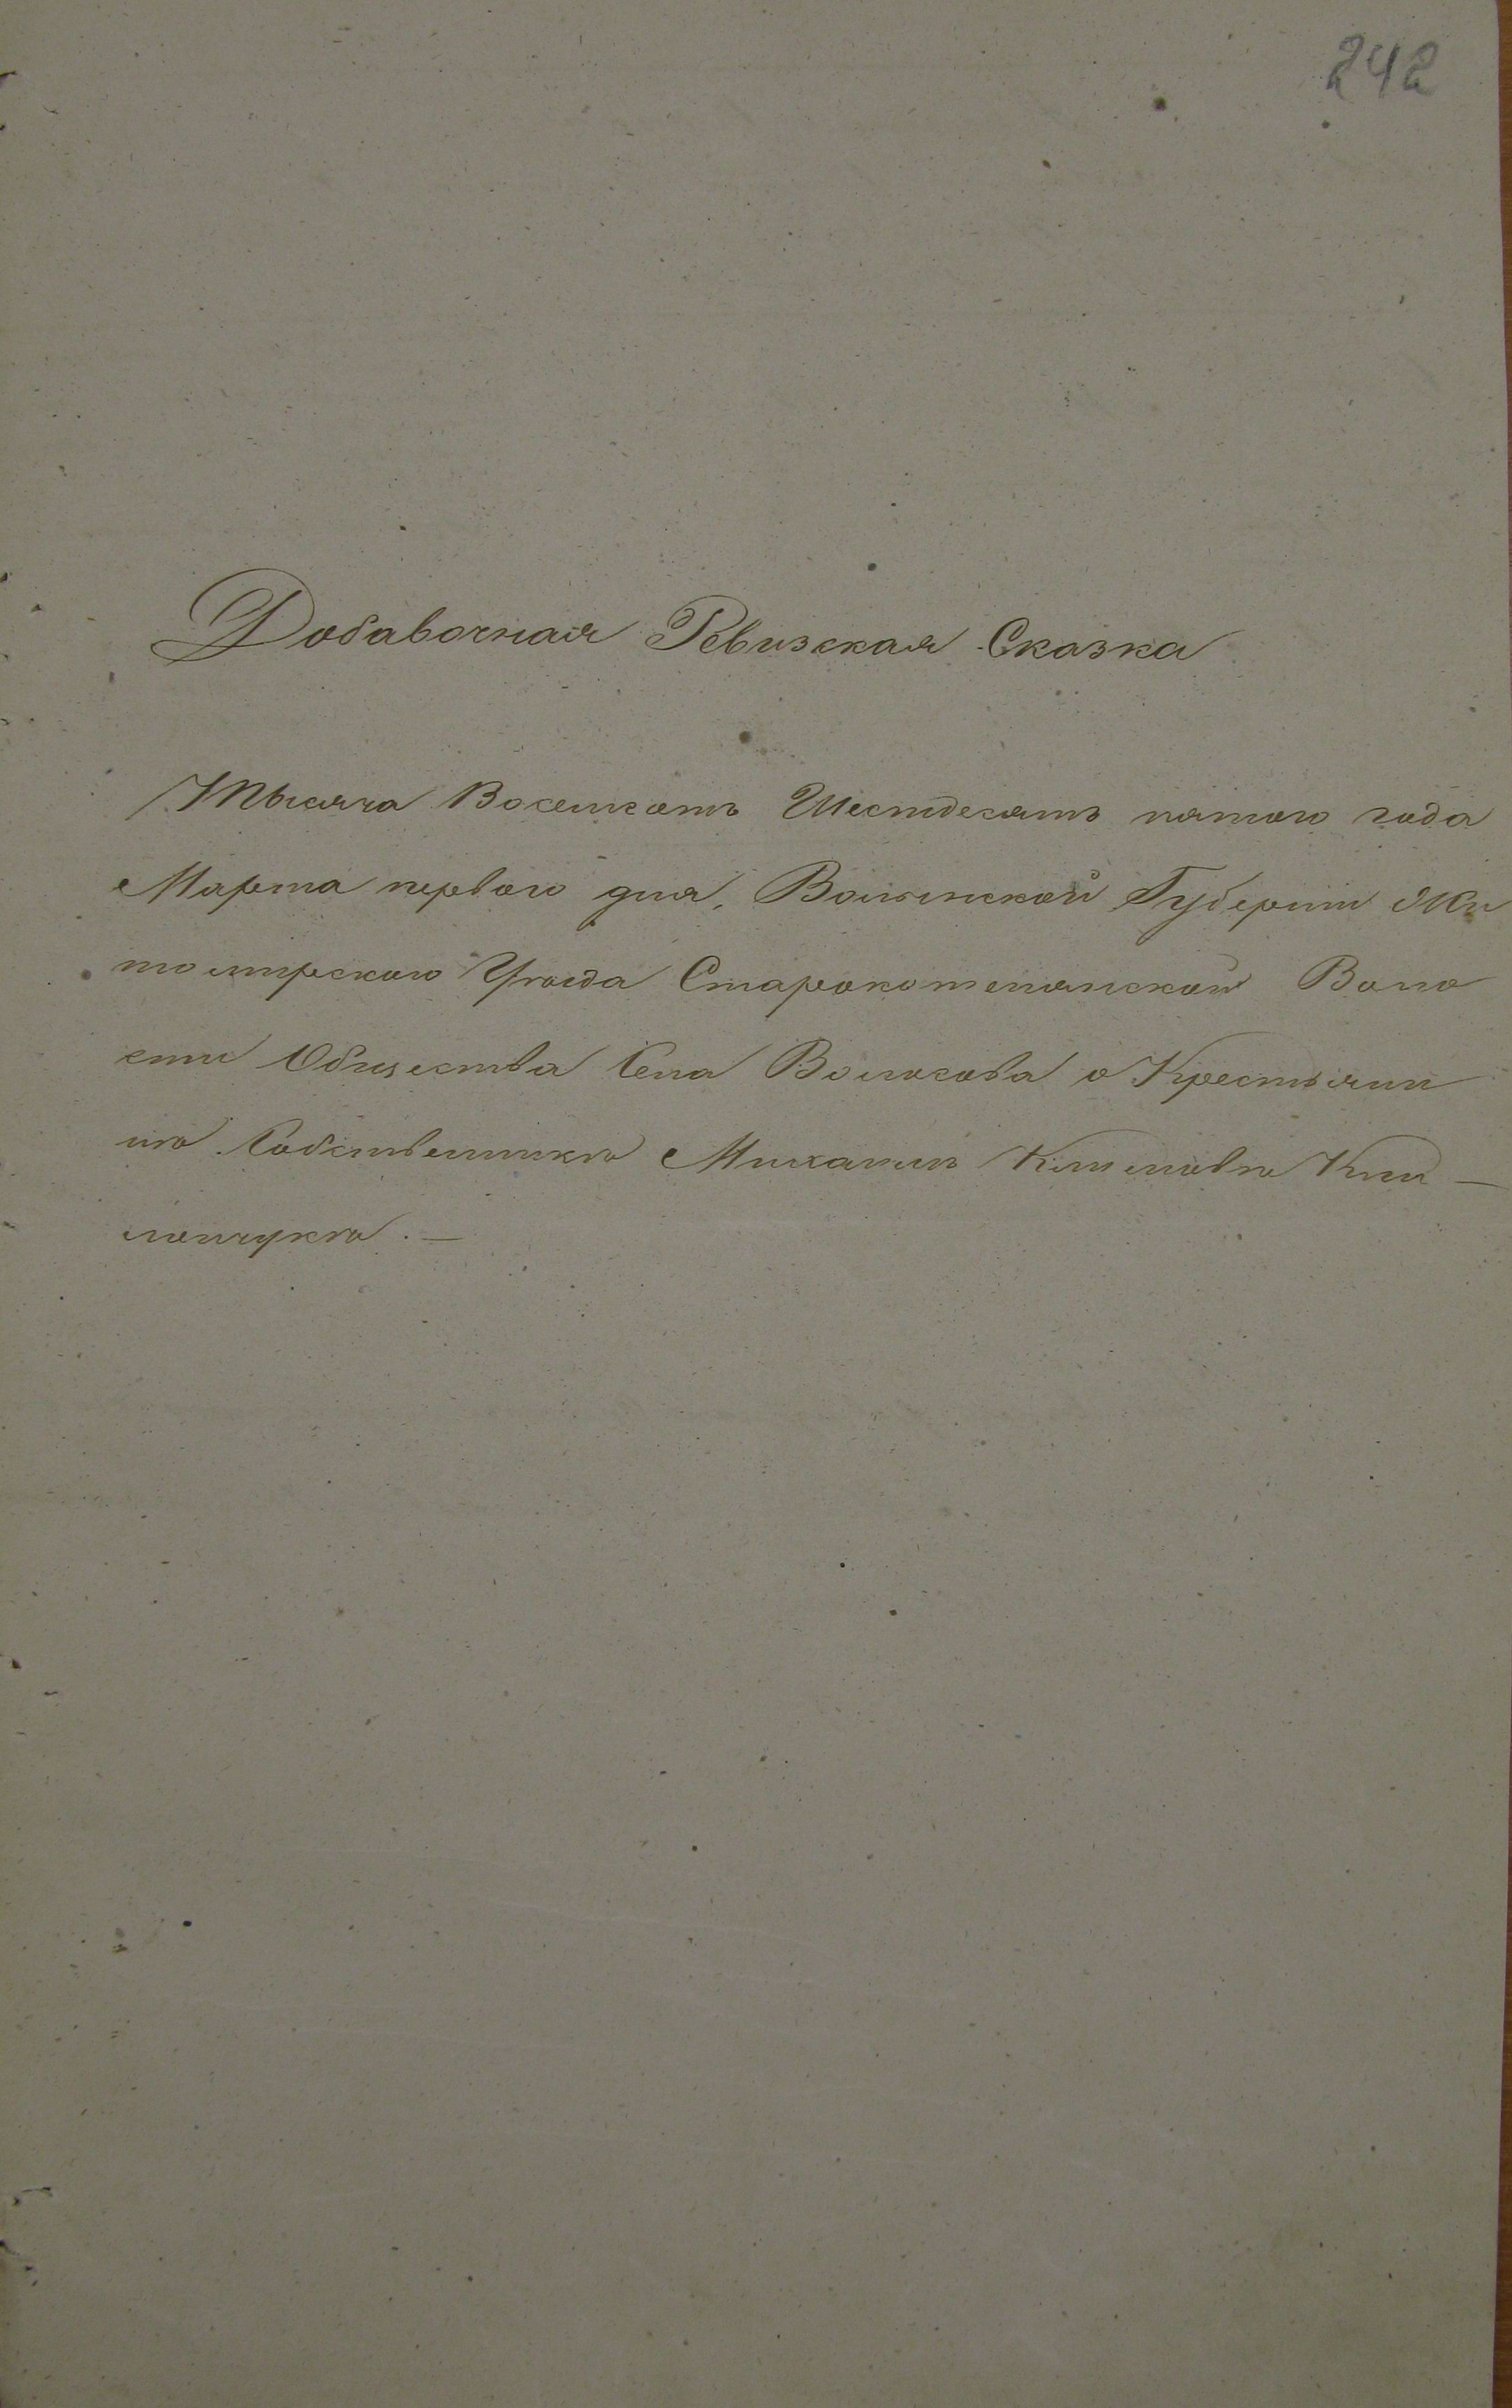 242
Добавочная Ревизская Сказка
Тысяча Восемсотъ Шестдесятъ пятого года
Марта первого дня, Волынской Губернiи Жи
томирского Уѣзда Старокотелянской Воло
сти Общества Села Волосова о Крестьяни
нѣ Собственникѣ Михаилѣ